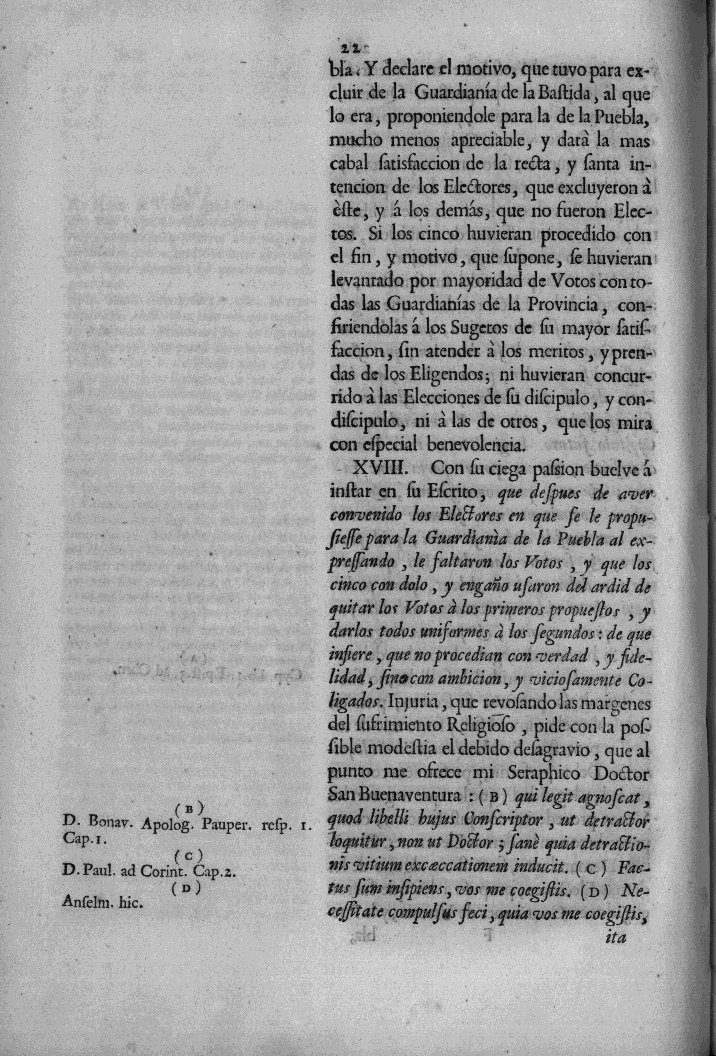 22
bla. Y declare el motivo, que tuvo para ex-
cluir de la Guardianía de la Baſtida, al que
lo era, proponiendole para la de la Puebla,
mucho menos apreciable, y darà la mas
cabal ſatisfaccion de la recta, y ſanta in-
tencion de los Electores, que excluyeron à
èſte, y á los demás, que no fueron Elec-
tos. Si los cinco huvieran procedido con
el fin, y motivo, que ſupone, ſe huvieran
levantado por mayoridad de Votos con to-
das las Guardianías de la Provincia, con-
firiendolas á los Sugetos de ſu mayor ſatiſ-
faccion, ſin atender à los meritos, y pren-
das de los Eligendos; ni huvieran concur-
rido à las Elecciones de ſu diſcipulo, y con-
diſcipulo, ni à las de otros, que los mira
con eſpecial benevolencia.
XVIII. Con ſu ciega paſsion buelve á
inſtar en ſu Eſcrito, que deſpues de aver
convenido los Electores en que ſe le propu-
ſieſſe para la Guardianìa de la Puebla al ex-
preſſando, le faltaron los Votos, y que los
cinco con dolo, y engaño uſaron del ardid de
quitar los Votos à los primeros propueſtos, y
darlos todos uniformes à los ſegundos: de que
infiere, que no procedian con verdad, y fide-
lidad, ſino con ambicion, y vicioſamente Co-
ligados. Injuria, que revoſando las margenes
del ſufrimiento Religioſo, pide con la poſ-
ſible modeſtia el debido deſagravio, que al
punto me ofrece mi Seraphico Doctor
San Buenaventura: (B) qui legit agnoſcat,
quod libelli hujus Conſcriptor, ut detractor
loquitur, non ut Doctor; ſanè quia detractio-
nis vitium excæccationem inducit. (C) Fac-
tus ſum inſipiens, vos me coegiſtis. (D) Ne-
ceſſitate compulſus feci, quia vos me coegiſtis,
ita
(B)
D. Bonav. Apolog. Pauper. reſp. 1.
Cap. 1.
(C)
D. Paul. ad Corint. Cap. 2.
(D)
Anſelm. hic.